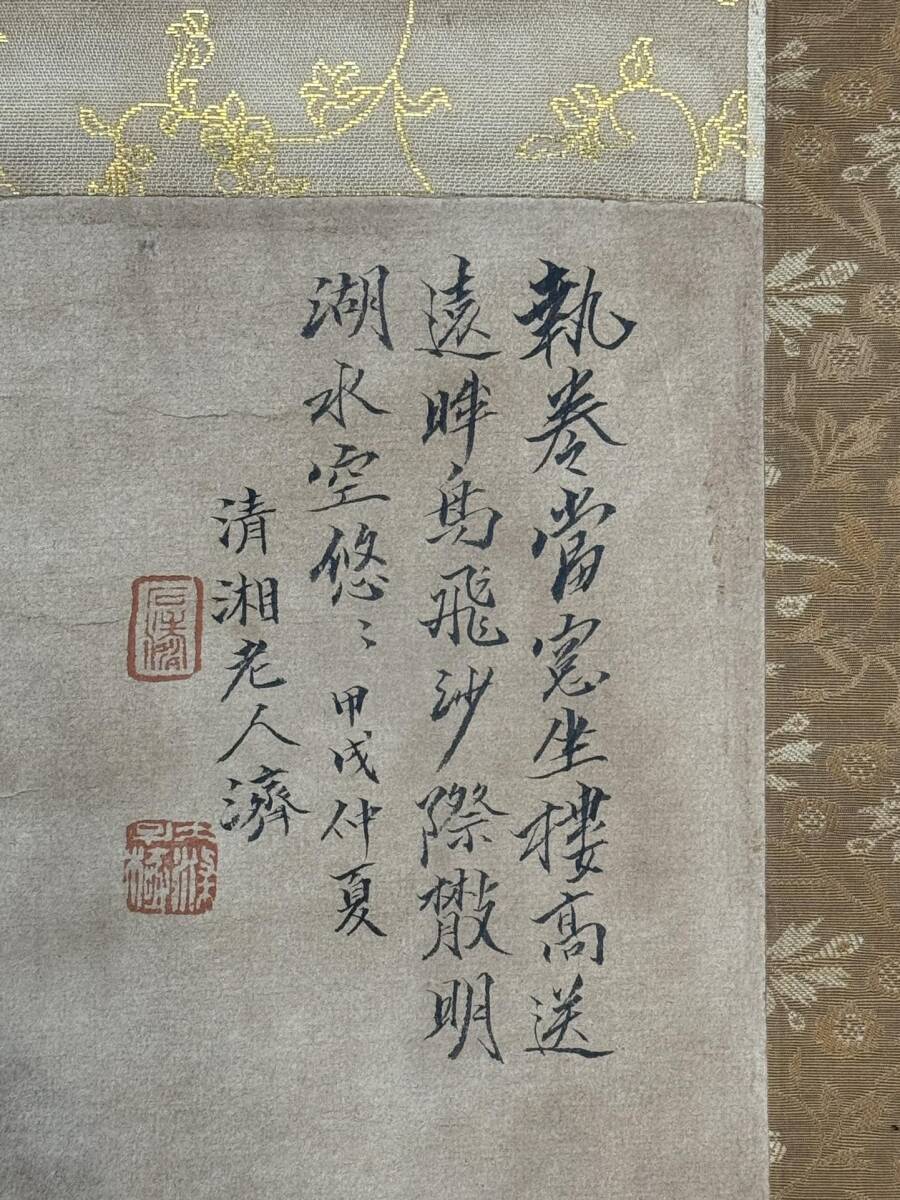 執卷當窓坐樓高送
遠眸鳥飛沙際散明
湖水空悠〻甲戌仲夏
清湘老人濟